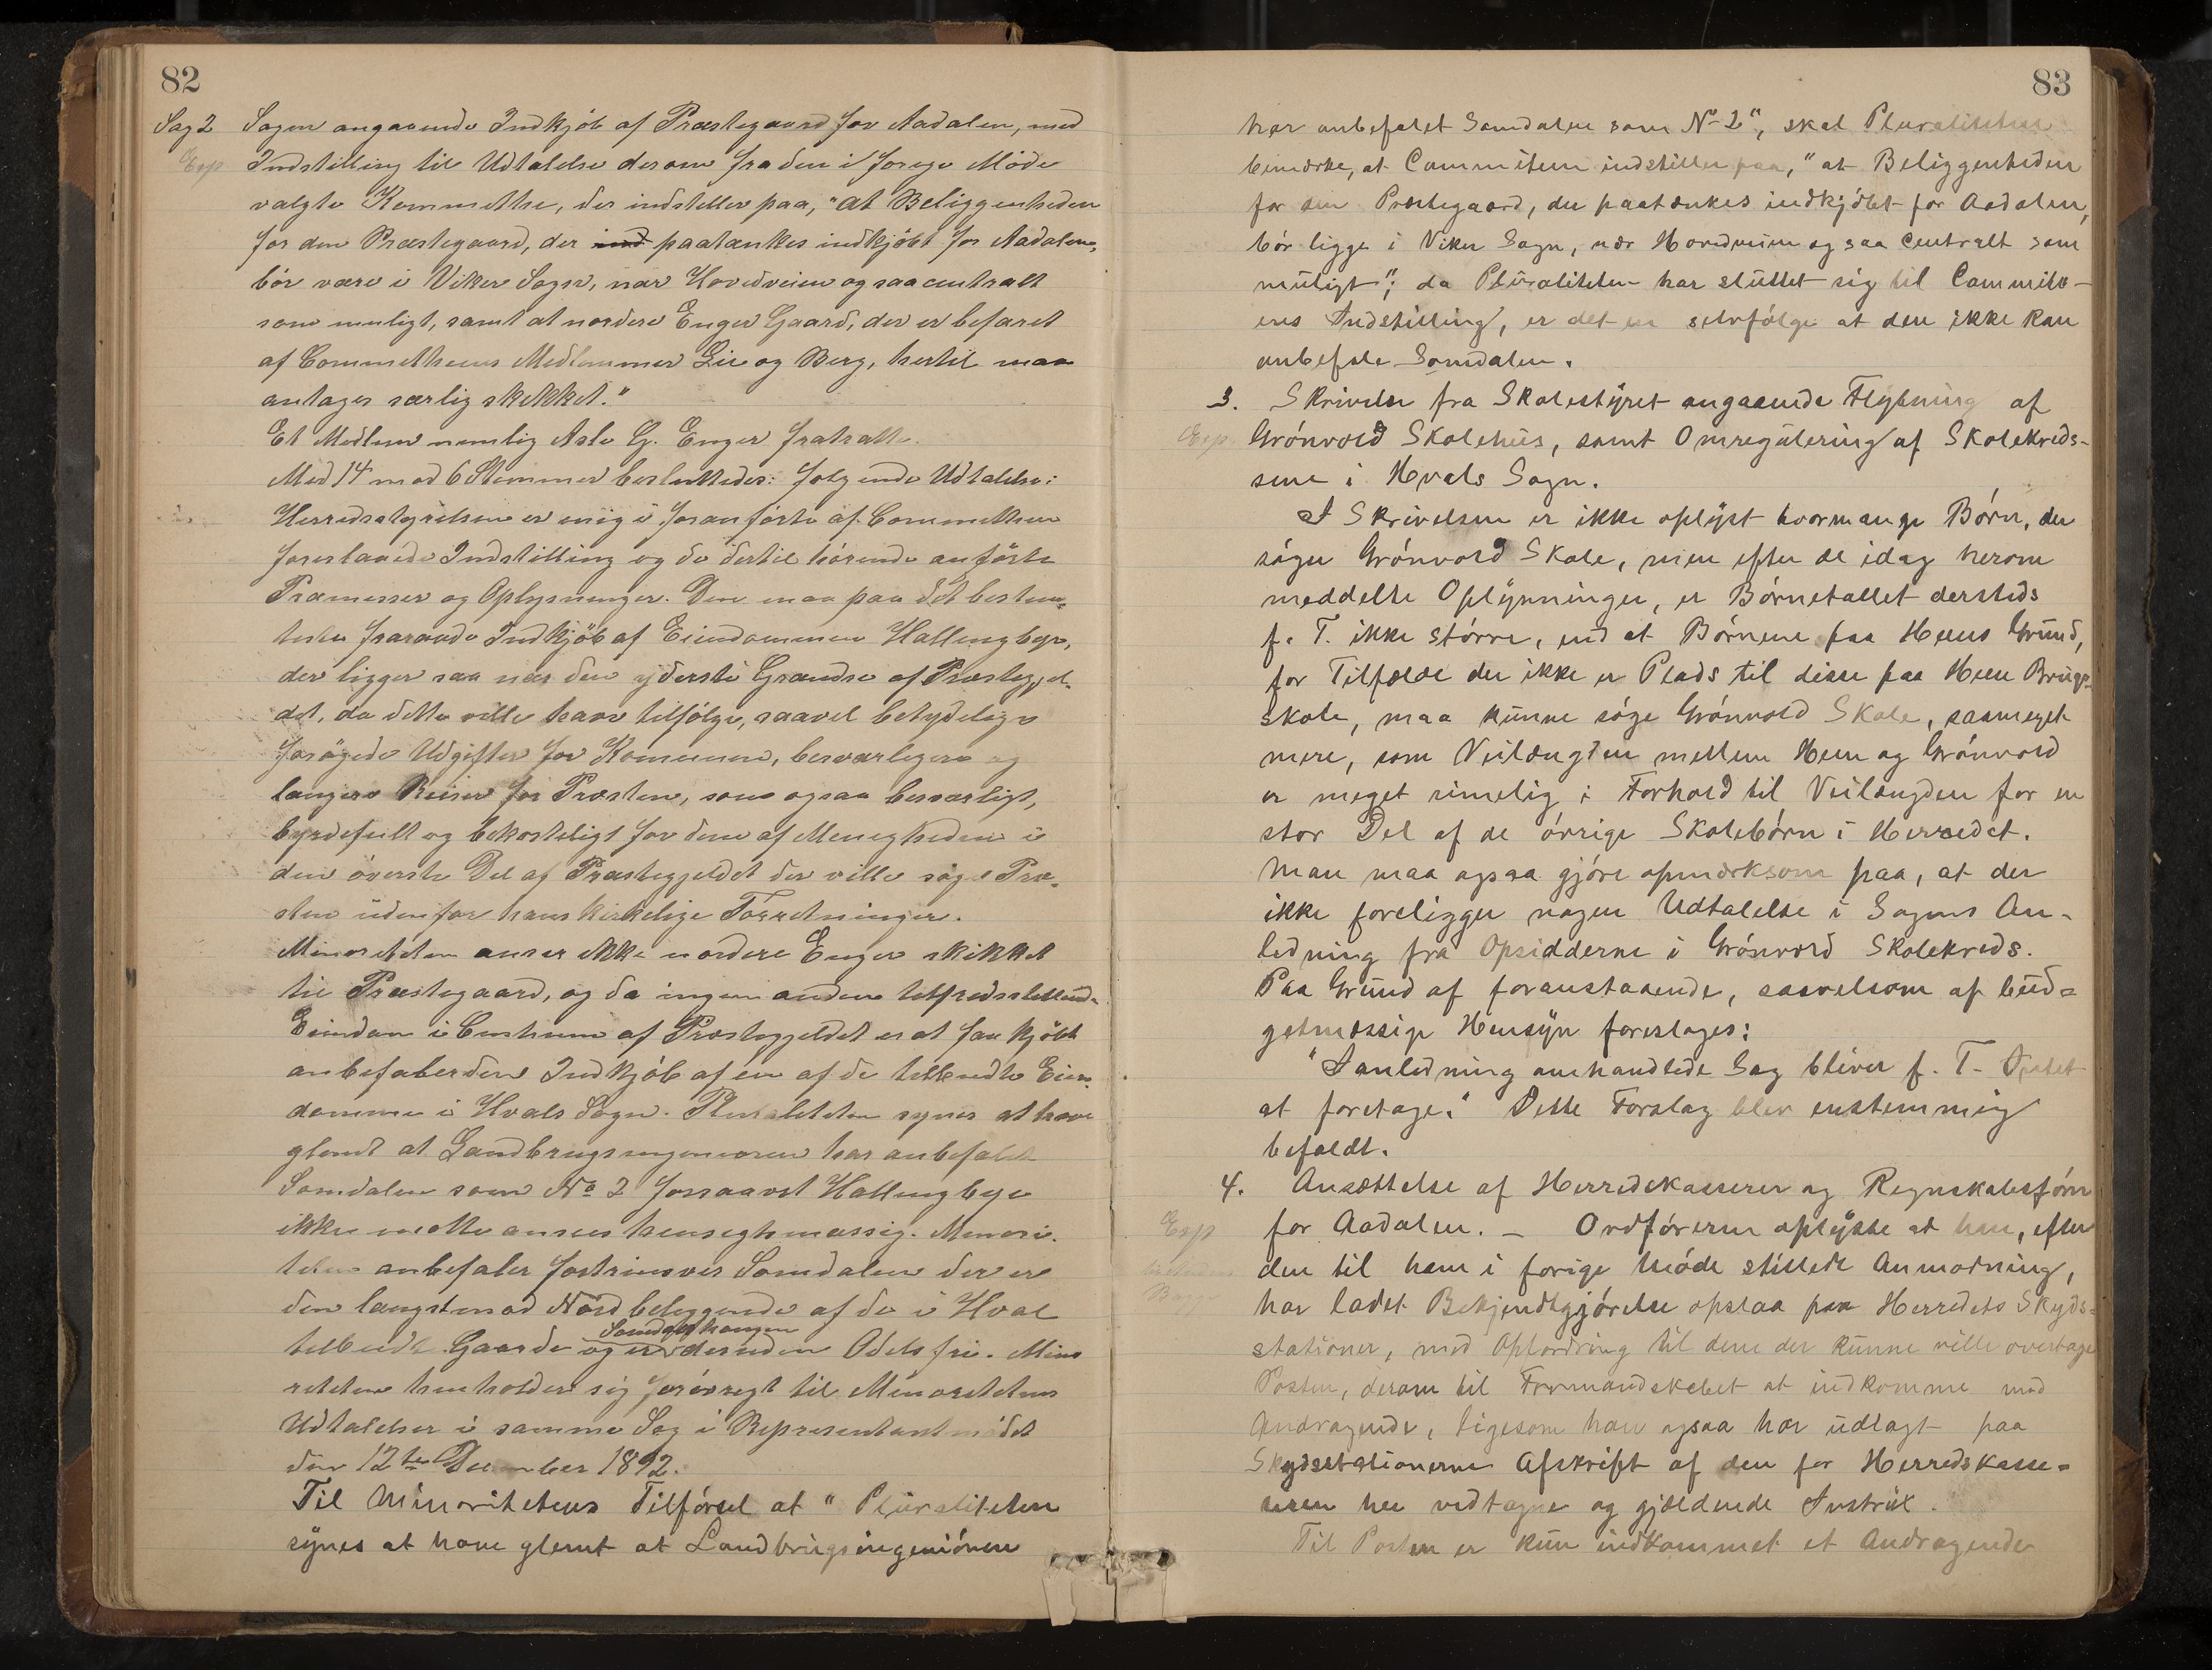 82
Sag 2 Sagen angaaende Indkjöb af Præstegaard for Aadalen, med
Exp Indstilling til Udtalelse derom fra den i forige Möde
valgte Kommitthe, der indstiller paa, "at Beliggenheden
for den Præstegaard, der ind paatænkes indkjöbt for Aadalen,
bör være i Viker Sogn, nær Hovedveien og saa centralt
som muligt, samt at nordere Enger Gaard, der er befaret
af Committheens Medlemmer Lie og Berg, hertil maa
antages særlig skikket."
Et Medlem nemlig Asle G. Enger fratratte.
Med 14 mod 6 Stemmer besluttedes: fölgende Udtalelse:
Herredsstyrelsen er enig i foranförte af Committheen
foreslaaede Indstilling og de dertil hörende anförte
Præmesser og Oplysninger. Den maa paa det bestem-
teste fraraade Indkjöb af Eiendommen Hallingbye,
der ligger saa nær den yderste Grændse af Præstegjel-
det, da dette ville have tilfölge, saavel betydelige
forögede Udgifter for Komunen, besværligere og
længere Reiser for Præsten, som ogsaa besværligt,
byrdefult og bekosteligt for dem af Menigheden i
den överste Del af Præstegjeldet der ville söge Præ-
sten udenfor hans kirkelige Forretninger.
Minoriteten anser ikke nordere Enger skikket
til Præstegaard, og da ingen anden tilfredsstillende
Eiendom i Centrum af Præstegjeldet er at faa kjöbt
anbefaler den Indkjöb af en af de tilbudte Eien-
domme i Hvals Sogn. Pluraliteten synes at have
glemt at Landbrugsingeniören har anbefalet
Somdalen som No 2 forsaavet Hallingbye
ikke motte ansees hensigtsmæssig. Minori-
teten anbefaler fortrinsvis Somdalen der er
den længst mod Nord beliggende af de i Hval
Somdalshaugen
tilbudte Gaarde og er desuden Odelsfri. Mino
riteten henholder sig forövrigt til Minoritetens
Udtalelser i samme Sag i Representantmödet
den 12te December 1892.
Til Minoritetens Tilförsel at "Pluraliteten
synes at have glemt at Landbrugsingeniören
83
har anbefalet Somdalen som No 2", skal Pluraliteten
bemærke, at Commiteen indstiller paa, "at Beliggenheden
for den Præstegaard, der paatænkes indkjöbt for Aadalen,
bör ligge i Viker Sogn, nær Hovedveien og saa centralt som
muligt"; da Pluraliteten har sluttet sig til Commite-
ens Indstilling, er det en selvfölge at den ikke kan
anbefale Somdalen.
3. Skrivelse fra Skolestyret angaaende Flytning af
Exp. Grönvold Skolehus, samt Omregulering af Skolekreds-
sene i Hvals Sogn.
I Skrivelsen er ikke oplyst hvormange Börn, der
söger Grönvold Skole, men efter de idag herom
meddelte Oplysninger, er Börnetallet dersteds
f. T. ikke större, end at Börnene paa Heens Grund,
for Tilfælde der ikke er Plads til disse paa Heen Brugs-
skole, maa kunne söge Grönvold Skole, saameget
mere, som Veilængden mellem Heen og Grönvold
er meget rimelig i Forhold til Veilængden for en
stor Del af de örrige Skolebörn i Herredet.
Man maa ogsaa gjöre opmærksom paa, at der
ikke foreligger nogen Udtalelse i Sagens An-
ledning fra Opsidderne i Grönvord Skolekreds.
Paa Grund af foranstaaende, saavelsom af bud-
getmæssige Hensyn foreslages:
"I anledning omhandlede Sag bliver f. T. Intet
at foretage." Dette Forslag blev enstemmig
befaldt.
4. Ansættelse af Herredskasserer og Regnskabsförer
Exp for Aadalen. - Ordföreren oplyste at han, efter
den til ham i forige Möde stillede Anmodning,
har ladet Bekjendtgjörelse opslaa paa Herredets Skyds-
stationer, med Opfordring til dem der kunne ville overtage
Posten, derom til Formandskabet at indkomme med
Andragende, ligesom han ogsaa har udlagt paa
Skydsstationerne Afskrift af den for Herredskasse-
reren her vedtagne og gjældende Instrux.
Til Posten er kun indkommet et Andragende